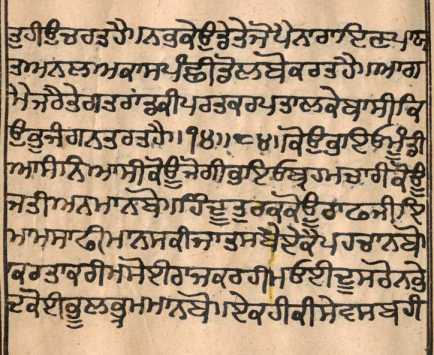 ਤੁਹੀਉਚਰਤਹੈ॥ਨਭਕੇਉਡੇਤੇਜੋਪੈਨਾਰਾਇਣਪਾਯ
ਤਅਨਲਅਕਾਸਪੰਛੀਡੋਲਬੋਕਰਤਹੈ॥ਆਗ
ਮੈਜਰੈਤੇਗਤਰਾਂਡਕੀਪਰਤਕਰਪਤਾਲਕੇਬਾਸੀਕਿ
ਉਭੁਜੰਗਨਤਰਤਹੈ॥੧੪॥੮੪॥ਕੋਊਭਇਓਮੂੰਡੀ
ਆਸੰਨਿਆਸੀਕੋਊਜੋਗੀਭਇਓਬ੍ਰਹਮਚਾਰੀਕੋਊ
ਜਤੀਅਨਮਾਨਬੋ॥ਹਿੰਦੂਤੁਰਕਕੋਊਰਾਫਜੀਇ
ਮਾਮਸਾਫੀਮਾਨਸਕੀਜਾਤਸਬੈਏਕੈਪਹਚਾਨਬੋ
ਕਰਤਾਕਰੀਮਸੋਈਰਾਜਕਰਹੀਮਓਈਦੂਸਰੋਨਭੇ
ਦਕੋਈਭੂਲਭ੍ਰਮਮਾਨਬੋ॥ਏਕਹੀਕੀਸੇਵਸਬਹੀ